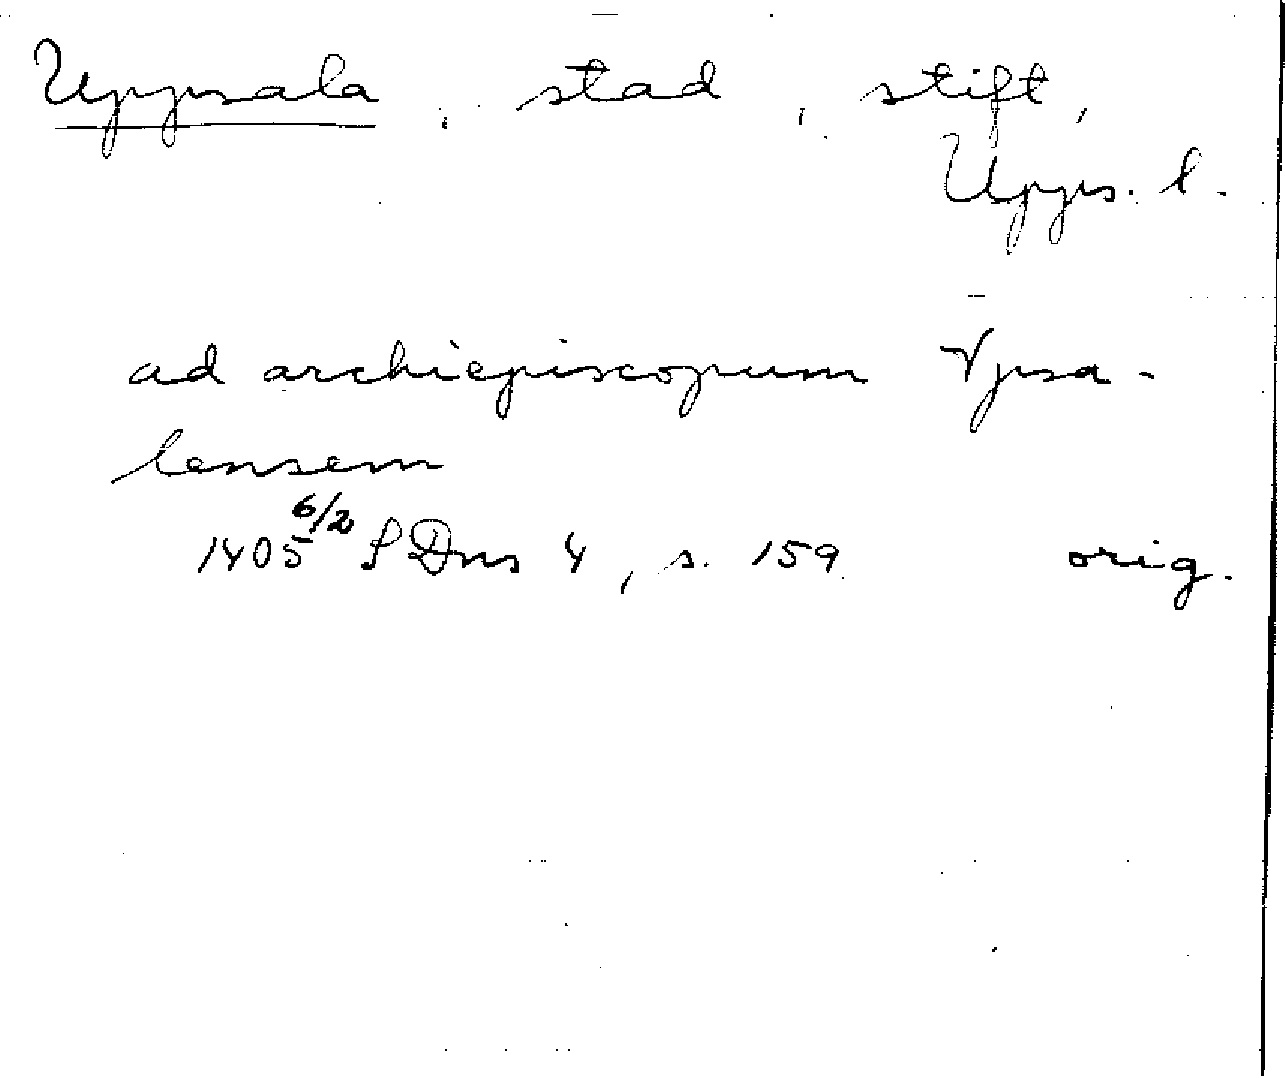 Uppsala, stad, stift,
Upps. l.
ad archiepiscopum Vpsa-
lensem
1405 6/2 SDns 4, s. 159 orig.